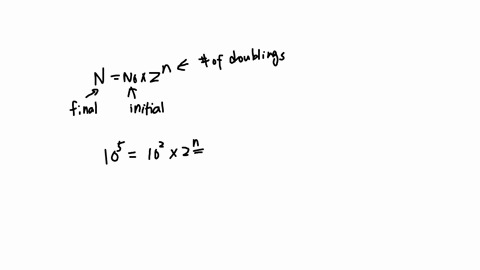 N = N₀ × 2ⁿ ← # of doublings
final initial
10⁵ = 10² × 2ⁿ